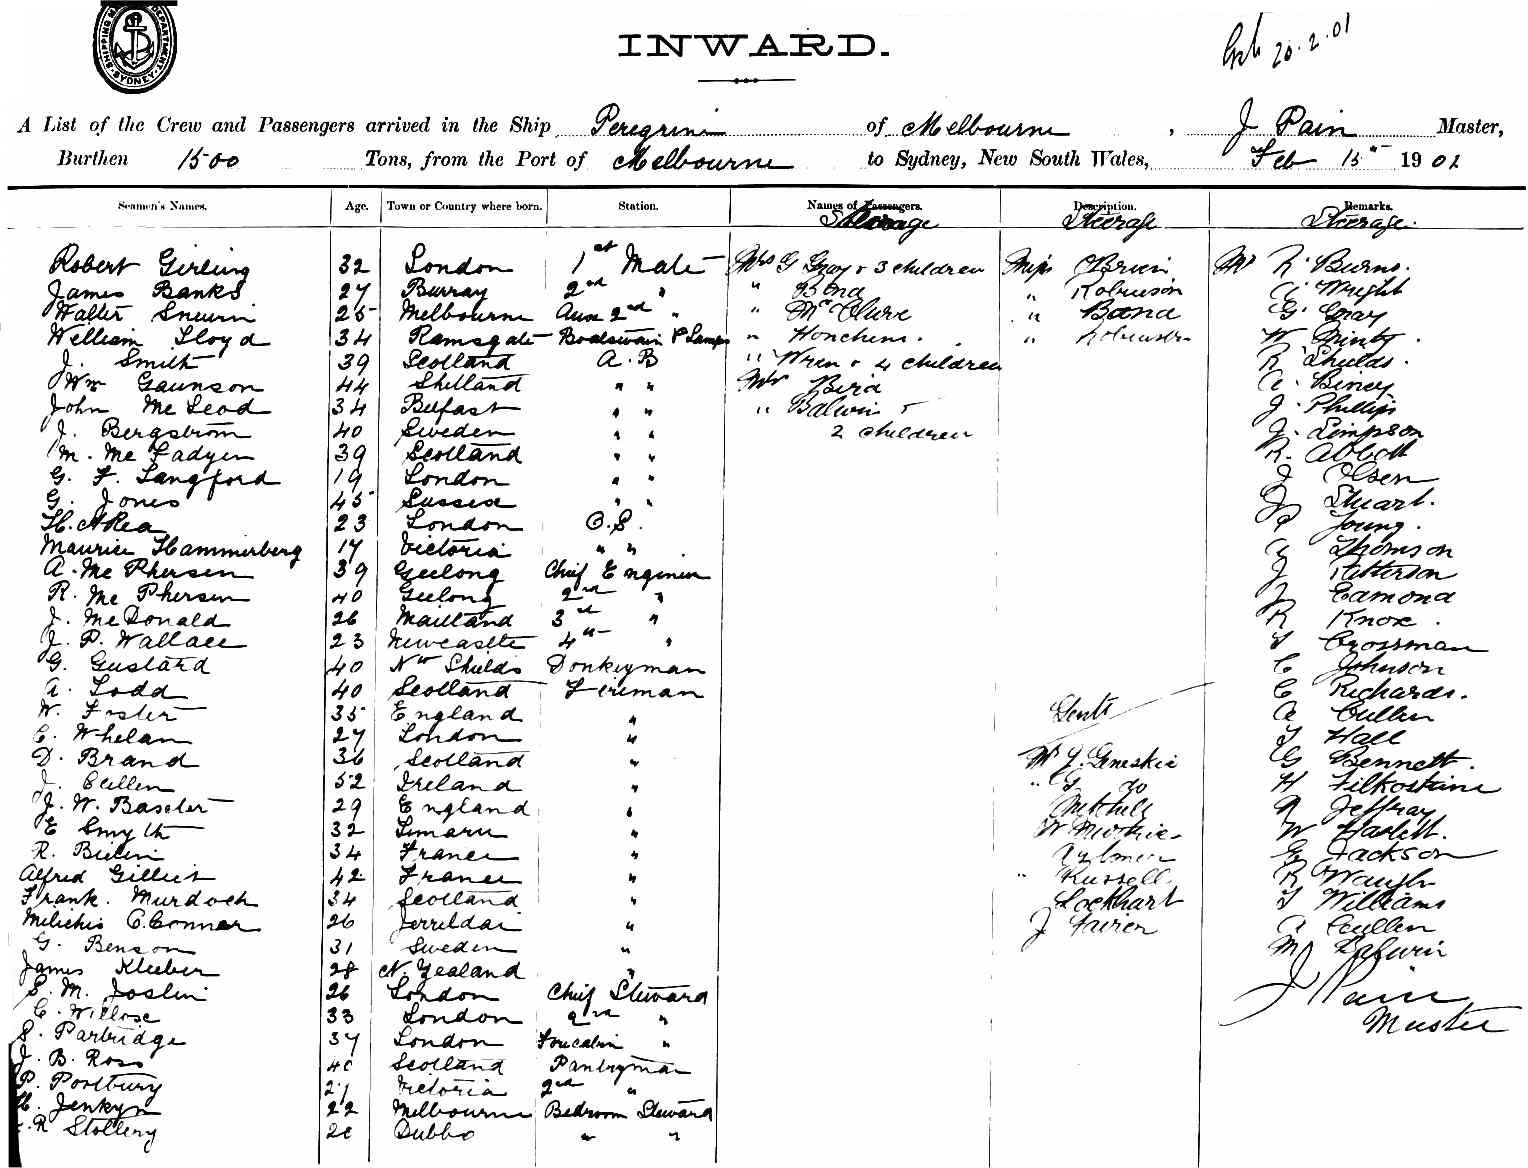 SHIPPING MASTER'S DEPARTMENT SYDNEY
INWARD.
20.2.01
A List of the Crew and Passengers arrived in the Ship Peregrine of Melbourne , J Pain Master,
Burthen 1500 Tons, from the Port of Melbourne to Sydney, New South Wales, Feb 15th 1901
Seamen's Names. Age. Town or Country where born. Station. Names of Passengers. Description. Remarks.
Steerage Steerage Steerage.
Robert Girling 32 London 1st Mate Mrs G Gray & 3 children Miss O'Brien Mr R Burns.
James Banks 27 Burray 2nd " " Bond " Robinson Wright
Walter Sneurin 25 Melbourne Aux 2nd " " McClure " Band G. Gray
William Lloyd 34 Ramsgate Boatswain & Lamps " " Robinson W
J. Smith 39 Scotland A.B " Wren & 4 children R Shields.
Wm Gaunson 44 Shetland " " Mr Bird A. Biney
John McLeod 34 Belfast " " " Balwin & J. Phillips
J. Bergstrom 40 Sweden " " 2 children J. Simpson
M. McFadyen 39 Scotland " " R. Abbott
G. F. Langford 19 London " " J Olsen
G. Jones 45 Sussex " " Stuart.
H. A Rea 23 London O.S. P Young.
Maurice Hammerberg 17 Victoria " " Thomson
A. McPhersen 39 Geelong Chief Engineer J Patterson
R. McPhersen 40 Geelong 2nd " Edmond
J. McDonald 26 Maitland 3rd " R Knox.
J. P. Wallace 23 Newcastle 4th " Crossman
G. Gustard 40 Nth Shields Donkeyman C Johnson
A. Todd 40 Scotland Fireman C Richards.
W. Foster 35 England " Gents A Cullen
C. Whelan 27 London " T Hall
D. Brand 36 Scotland " Mr J. Geneskie G Bennett.
J. Cullen 52 Ireland " " G do H
J. W. Baseler 29 England " Mitchell Jeffray
E Smyth 32 Timaru " W W Haslett.
R. 34 France " G Jackson
Alfred Gilliet 42 France " " Russell R Waugh
Frank. Murdoch 34 Scotland " Lockhart T Williams
C. Conner 26 Jerrildai " J Fairer A Cullen
G. Benson 31 Sweden " M Balwin
James Kleeber 28 N. Zealand "
S. M. Joslin 26 London Chief Steward J Pain
C. Willose 33 London 2nd " Master
S. Partridge 37 London Forecabin "
J. B. Ross 40 Scotland Pantryman
P. Portbury 21 Victoria 2nd "
H. Jenkyn 22 Melbourne Bedroom Steward
R Stollery Dubbo " "